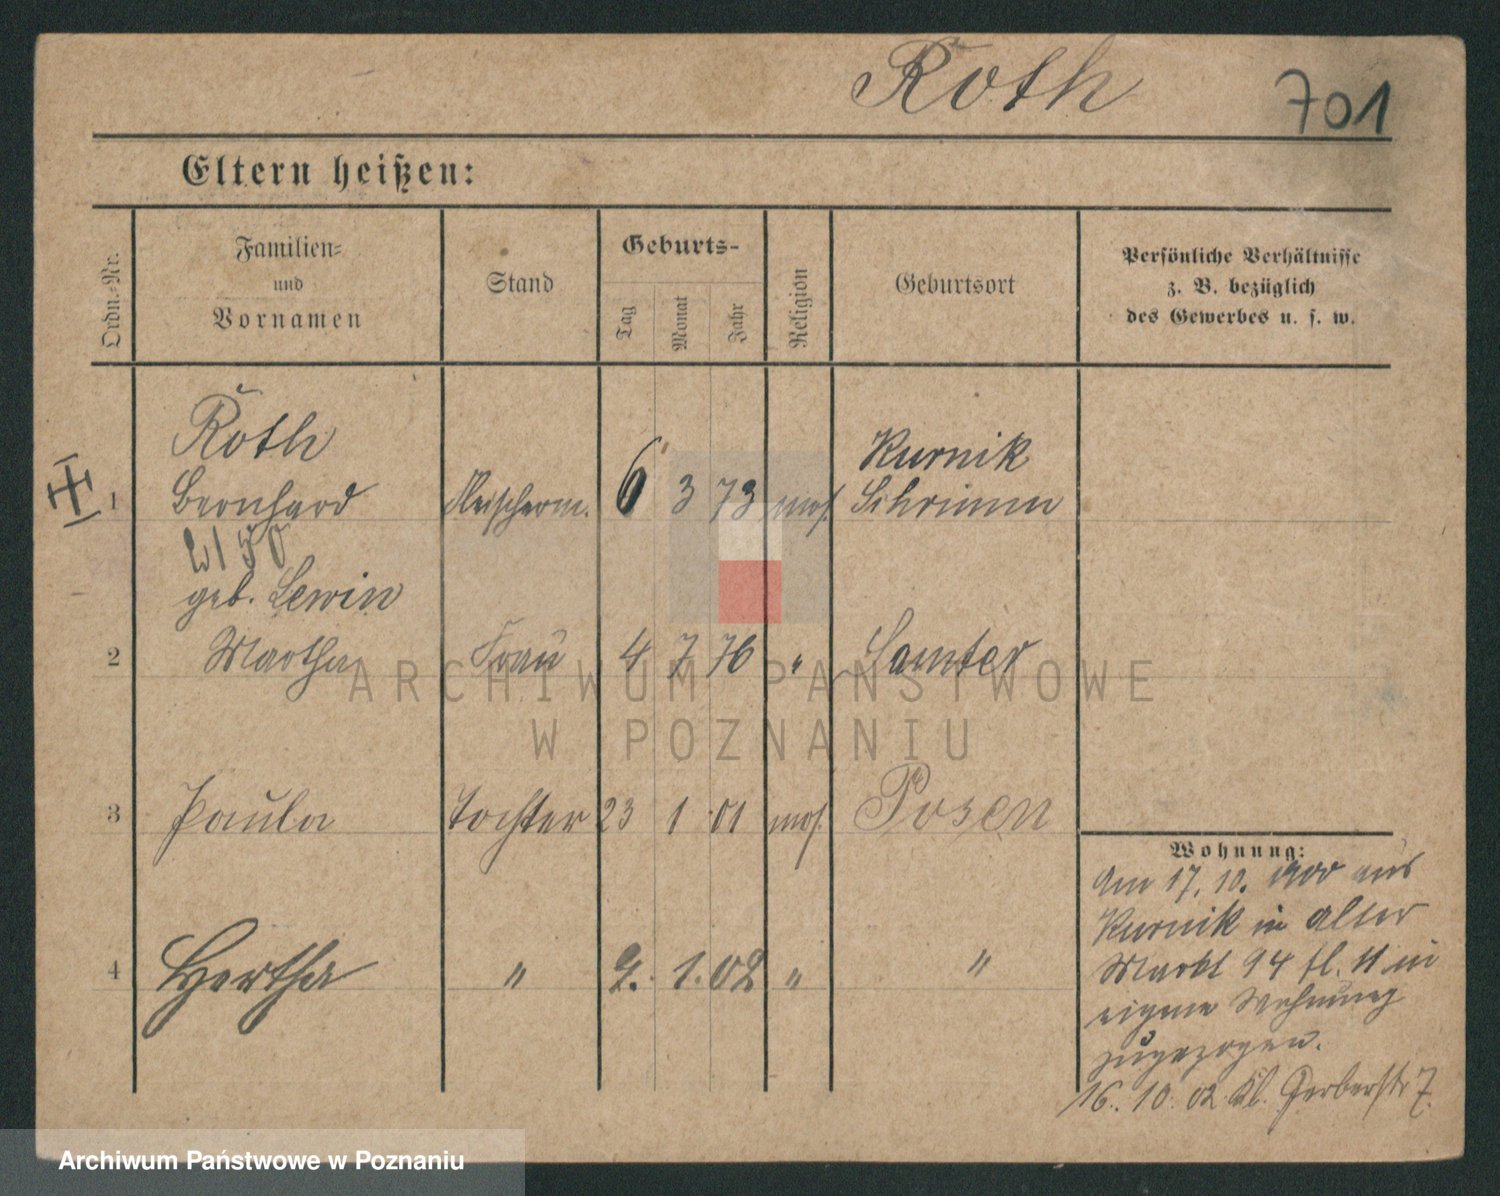 Roth 701
Eltern heißen:
Ordn.-Nr.
Familien-
und
Vornamen
Stand
Geburts-
Tag
Monat
Jahr
Religion
Geburtsort
Persönliche Verhältnisse
z. B. bezüglich
des Gewerbes u. s. w.
Roth
1 Bernhard Fleischerm. 6 3 73 mos.
Kurnik
Schrimm
geb. Lewin
2 Martha Frau 4 7 76 " Samter
3 Paula Tochter 23 1 01 mos. Posen
4 Hertha " 9. 1. 02 " "
Wohnung:
Am 17. 10. 1900 aus
Kurnik in Alter
Markt 94 fl. II in
eigene Wohnung
zugezogen.
16. 10. 02 Kl. Gerberstr 7.
ARCHIWUM PAŃSTWOWE
W POZNANIU
Archiwum Państwowe w Poznaniu